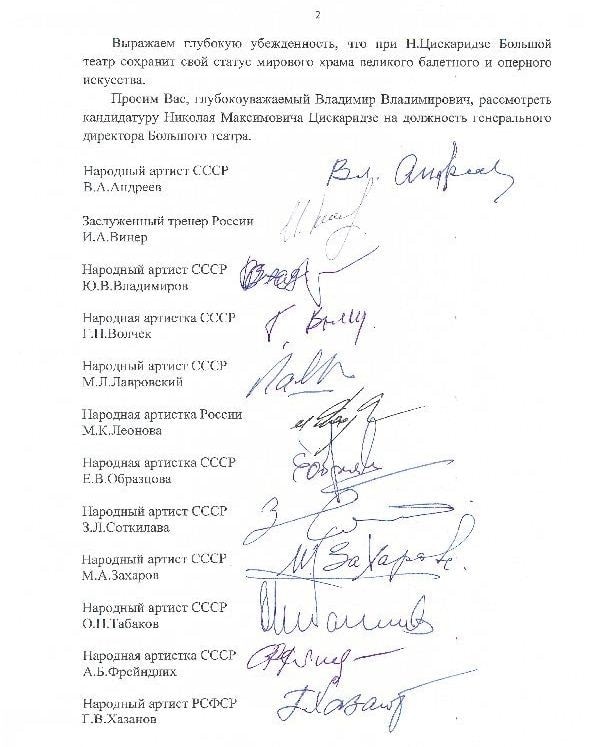 2
Выражаем глубокую убежденность, что при Н.Цискаридзе Большой
театр сохранит свой статус мирового храма великого балетного и оперного
искусства.
Просим Вас, глубокоуважаемый Владимир Владимирович, рассмотреть
кандидатуру Николая Максимовича Цискаридзе на должность генерального
директора Большого театра.
Народный артист СССР
В.А.Андреев
Заслуженный тренер России
И.А.Винер
Народный артист СССР
Ю.В.Владимиров
Народная артистка СССР
Г.Н.Волчек
Народный артист СССР
М.Л.Лавровский
Народная артистка России
М.К.Леонова
Народная артистка СССР
Е.В.Образцова
Народный артист СССР
З.Л.Соткилава
Народный артист СССР
М.А.Захаров
Народный артист СССР
О.П.Табаков
Народная артистка СССР
А.Б.Фрейндлих
Народный артист РСФСР
Г.В.Хазанов